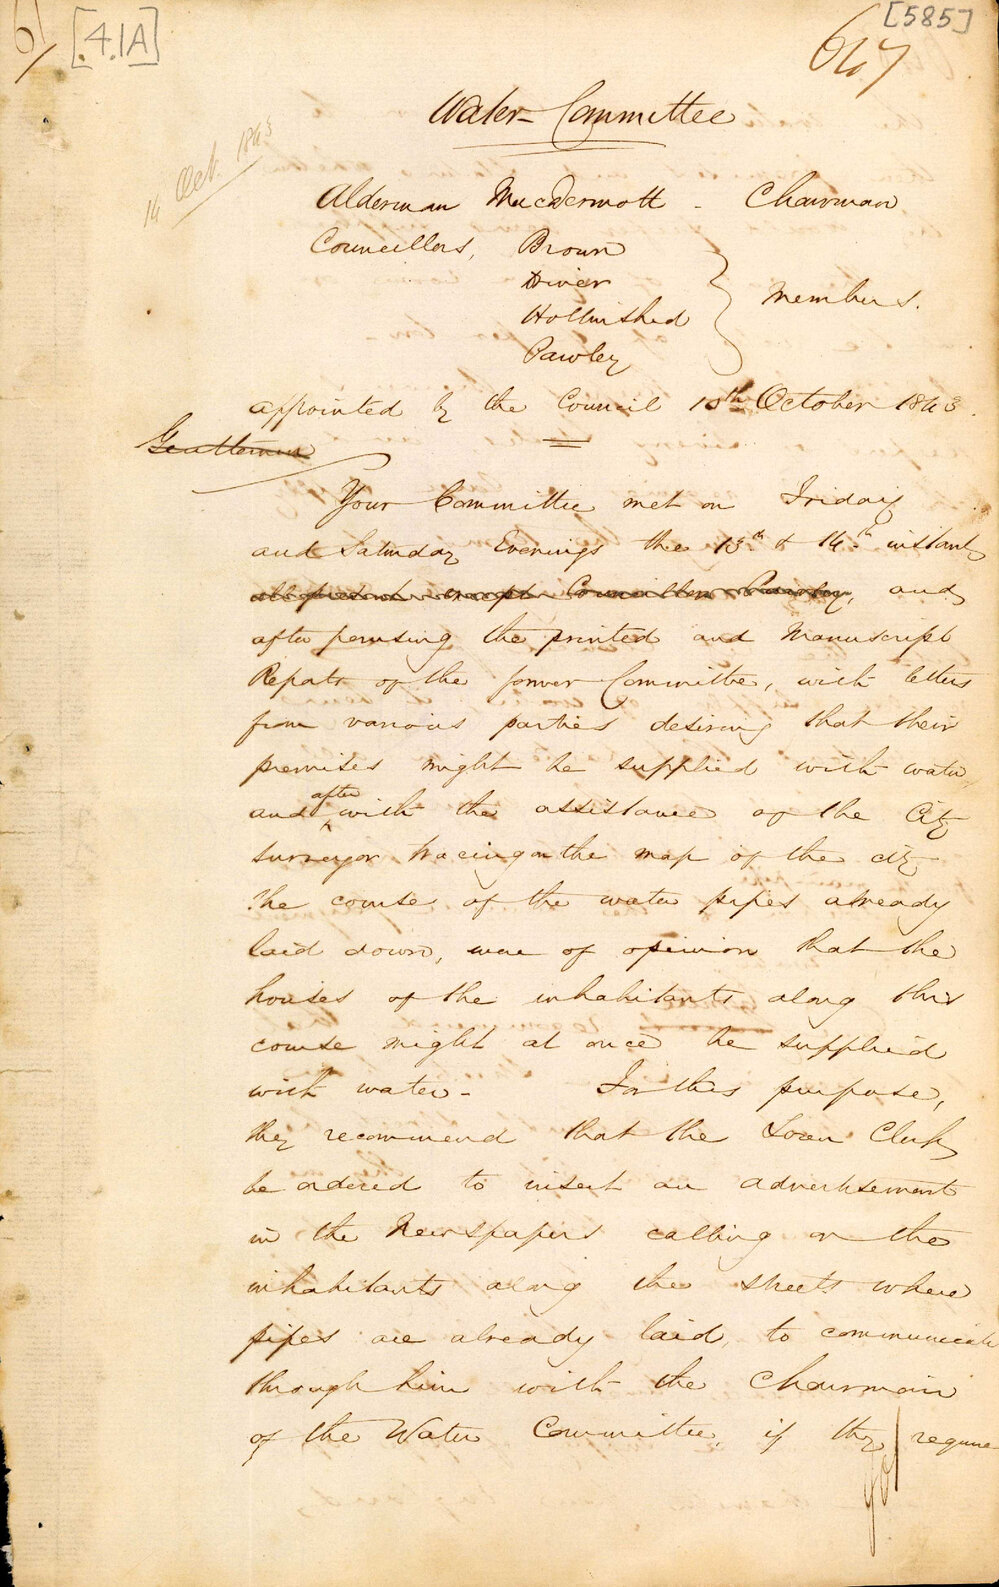 [585]
[.4.1A]
647
Water Committee
14 Oct. 1843
Alderman MacDermott - Chairman
Councillors, Brown
Driver
Hollinshed
Members.
Pawley
appointed by the Council 10th October 1843.
Gentlemen
Your Committee met on Friday
and Saturday Evenings the 13th & 14th instant
all present except Councillor Pawley, and
after perusing the printed and Manuscript
Reports of the former Committee, with letters
from various parties desiring that their
premises might be supplied with water,
and after with the assistance of the City
Surveyor tracing on the map of the city
the course of the water pipes already
laid down, were of opinion that the
houses of the inhabitants along this
course might at once be supplied
with water - For this purpose,
they recommend that the Town Clerk
be ordered to insert an advertisement
in the Newspapers calling on the
inhabitants along the streets where
pipes are already laid, to communicate
through him with the Chairman
of the Water Committee, if they require